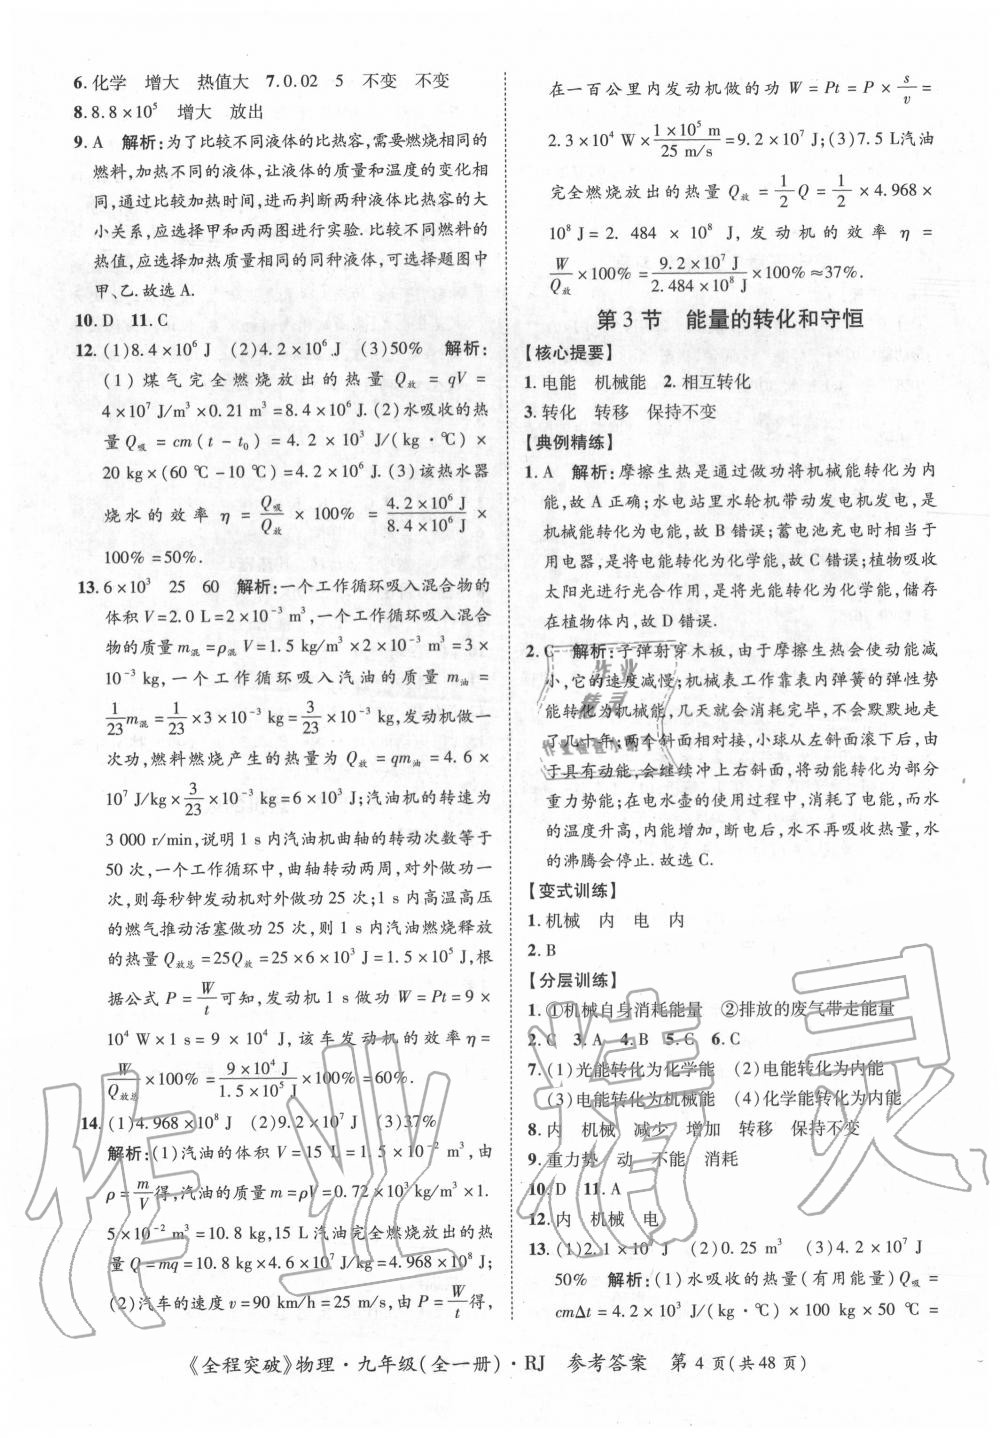 6. 化学　增大　热值大　7. 0.02　5　不变　不变
8. 8.8×10⁵　增大　放出
9. A　解析:为了比较不同液体的比热容,需要燃烧相同的
燃料,加热不同的液体,让液体的质量和温度的变化相
同,通过比较加热时间,进而判断两种液体比热容的大
小关系,应选择甲和丙两图进行实验. 比较不同燃料的
热值,应选择加热质量相同的同种液体,可选择题图中
甲、乙. 故选 A.
10. D　11. C
12. (1)8.4×10⁶ J　(2)4.2×10⁶ J　(3)50%　解析:
(1)煤气完全燃烧放出的热量 Q放 = qV =
4×10⁷ J/m³×0.21 m³=8.4×10⁶ J. (2)水吸收的热
量 Q吸 = cm(t-t₀) = 4.2×10³ J/(kg·℃)×
20 kg×(60 ℃-10 ℃)=4.2×10⁶ J. (3)该热水器
烧水的效率 η = Q吸/Q放 × 100% = 4.2×10⁶ J/8.4×10⁶ J ×
100%=50%.
13. 6×10³　25　60　解析:一个工作循环吸入混合物的
体积 V=2.0 L=2×10⁻³ m³,一个工作循环吸入混合
物的质量 m混=ρ混V=1.5 kg/m³×2×10⁻³ m³=3×
10⁻³ kg,一个工作循环吸入汽油的质量 m油 =
1/23 m混=1/23×3×10⁻³ kg=3/23×10⁻³ kg,发动机做一
次功,燃料燃烧产生的热量为 Q放 = qm油 = 4.6×
10⁷ J/kg×3/23×10⁻³ kg=6×10³ J;汽油机的转速为
3 000 r/min,说明 1 s 内汽油机曲轴的转动次数等于
50 次,一个工作循环中,曲轴转动两周,对外做功一
次,则每秒钟发动机对外做功 25 次;1 s 内高温高压
的燃气推动活塞做功 25 次,则 1 s 内汽油燃烧释放
的热量 Q放总=25Q放=25×6×10³ J=1.5×10⁵ J,根
据公式 P=W/t可知,发动机 1 s 做功 W=Pt=9×
10⁴ W×1 s=9×10⁴ J,该车发动机的效率 η=
W/Q放总×100%=9×10⁴ J/1.5×10⁵ J×100%=60%.
14. (1)4.968×10⁸ J　(2)9.2×10⁷ J　(3)37%
解析:(1)汽油的体积 V=15 L=1.5×10⁻² m³,由
ρ=m/V得,汽油的质量 m=ρV=0.72×10³ kg/m³×1.
5×10⁻² m³=10.8 kg,15 L 汽油完全燃烧放出的热
量 Q=mq=10.8 kg×4.6×10⁷ J/kg=4.968×10⁸ J;
(2)汽车的速度 v=90 km/h=25 m/s,由 P=W/t得,
在一百公里内发动机做的功 W=Pt=P×s/v=
2.3×10⁴ W×1×10⁵ m/25 m/s=9.2×10⁷ J;(3)7.5 L汽油
完全燃烧放出的热量 Q放=1/2Q=1/2×4.968×
10⁸ J=2.484×10⁸ J,发动机的效率 η=
W/Q放×100%=9.2×10⁷ J/2.484×10⁸ J×100%≈37%.
第 3 节　能量的转化和守恒
【核心提要】
1. 电能　机械能　2. 相互转化
3. 转化　转移　保持不变
【典例精练】
1. A　解析:摩擦生热是通过做功将机械能转化为内
能,故 A 正确;水电站里水轮机带动发电机发电,是
机械能转化为电能,故 B 错误;蓄电池充电时相当于
用电器,将电能转化为化学能,故 C 错误;植物吸收
太阳光进行光合作用,是将光能转化为化学能,储存
在植物体内,故 D 错误.
2. C　解析:子弹射穿木板,由于摩擦生热会使动能减
小,它的速度减慢;机械表工作靠表内弹簧的弹性势
能转化为机械能,几天就会消耗完毕,不会默默地走
了几十年;两个斜面相对接,小球从左斜面滚下后,由
于具有动能,会继续冲上右斜面,将动能转化为部分
重力势能;在电水壶的使用过程中,消耗了电能,而水
的温度升高,内能增加,断电后,水不再吸收热量,水
的沸腾会停止. 故选 C.
【变式训练】
1. 机械　内　电　内
2. B
【分层训练】
1. ①机械自身消耗能量　②排放的废气带走能量
2. C　3. A　4. B　5. C　6. C
7. (1)光能转化为化学能　(2)电能转化为内能
(3)电能转化为机械能　(4)化学能转化为内能
8. 内　机械　减少　增加　转移　保持不变
9. 重力势　动　不能　消耗
10. D　11. A
12. 内　机械　电
13. (1)2.1×10⁷ J　(2)0.25 m³　(3)4.2×10⁷ J
50%　解析:(1)水吸收的热量(有用能量)Q吸=
cmΔt=4.2×10³ J/(kg·℃)×100 kg×50 ℃=
《全程突破》物理·九年级(全一册)·RJ　参考答案　第 4 页(共 48 页)
作业
精灵
作业精灵